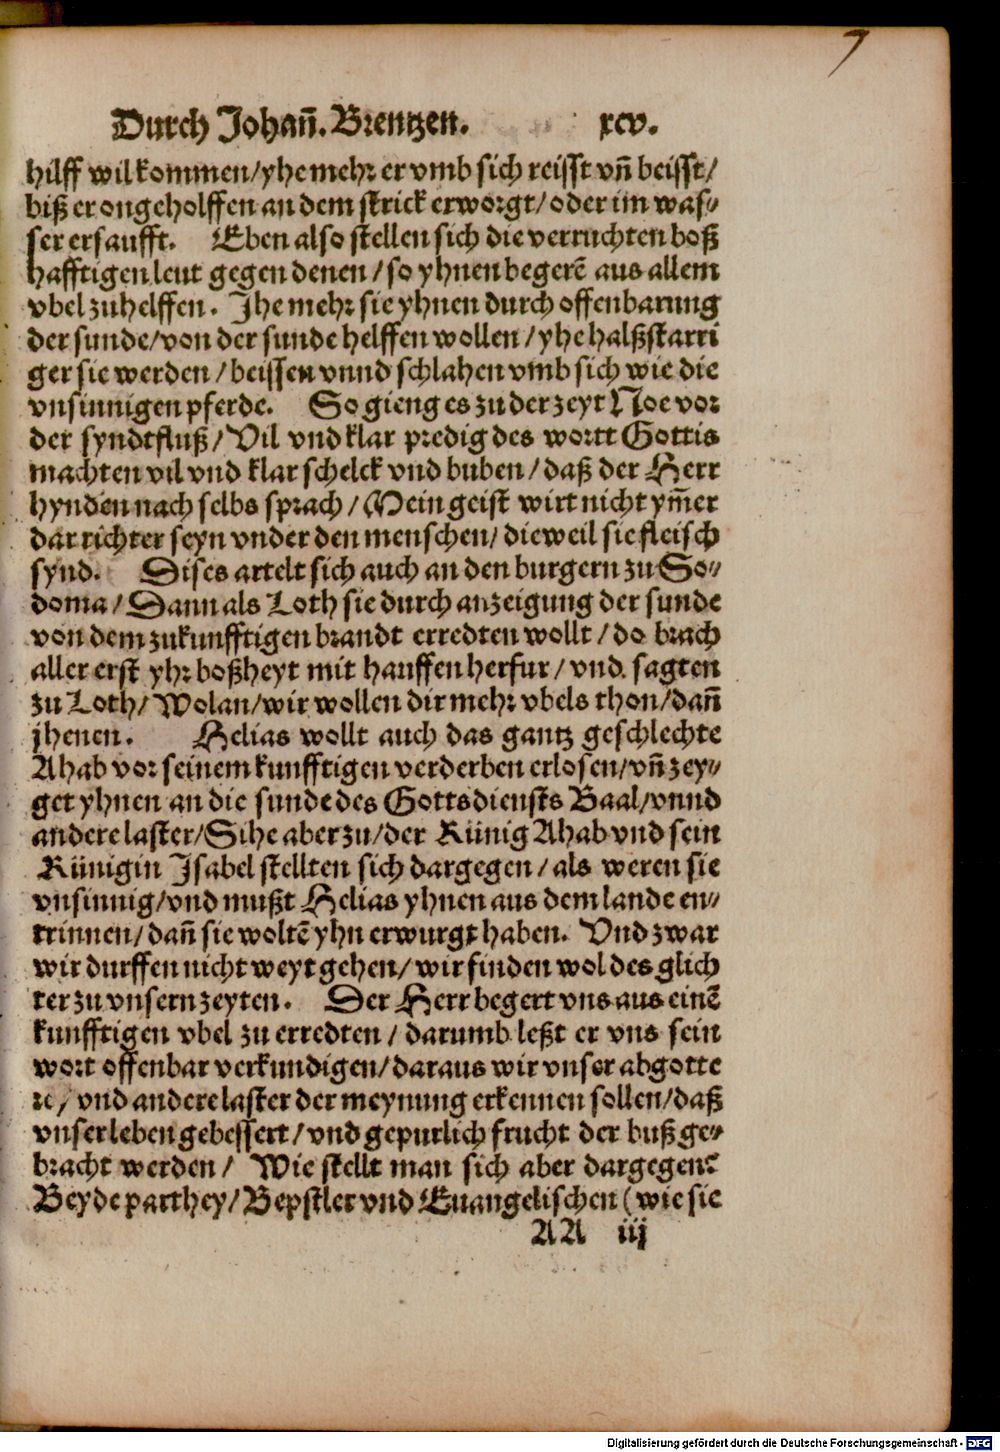 7
Durch Johañ. Brentzen. xcv.
hilff wil kommen/yhe mehr er vmb sich reisst vñ beisst/
biß er ongeholffen an dem strick erworgt/oder im was⸗
ser ersaufft. Eben also stellen sich die verruchten boß
hafftigen leut gegen denen/so yhnen begerē aus allem
vbel zuhelffen. Ihe mehr sie yhnen durch offenbarung
der sunde/von der sunde helffen wollen/yhe halßstarri
ger sie werden/beissen vnnd schlahen vmb sich wie die
vnsinnigen pferde. So gieng es zu der zeyt Noe vor
der syndtfluß/Vil vnd klar predig des wortt Gottis
machten vil vnd klar schelck vnd buben/daß der Herr
hynden nach selbs sprach/Mein geist wirt nicht ym̃er
dar richter seyn vnder den menschen/dieweil sie fleisch
synd. Dises artelt sich auch an den burgern zu So⸗
doma/Dann als Loth sie durch anzeigung der sunde
von dem zukunfftigen brandt erredten wollt/do brach
aller erst yhr boßheyt mit hauffen herfur/vnd sagten
zu Loth/Wolan/wir wollen dir mehr vbels thon/dañ
jhenen. Helias wollt auch das gantz geschlechte
Ahab vor seinem kunfftigen verderben erlosen/vñ zey⸗
get yhnen an die sunde des Gottsdiensts Baal/vnnd
andere laster/Sihe aber zu/der Künig Ahab vnd sein
Künigin Isabel stellten sich dargegen/als weren sie
vnsinnig/vnd mußt Helias yhnen aus dem lande en⸗
trinnen/dañ sie woltē yhn erwurgt haben. Vnd zwar
wir durffen nicht weyt gehen/wir finden wol des glich
ter zu vnsern zeyten. Der Herr begert vns aus einē
kunfftigen vbel zu erredten/darumb leßt er vns sein
wort offenbar verkundigen/daraus wir vnser abgotte
re/vnd andere laster der meynung erkennen sollen/daß
vnser leben gebessert/vnd gepurlich frucht der buß ge⸗
bracht werden/Wie stellt man sich aber dargegen?
Beyde parthey/Bepstler vnd Euangelischen (wie sie
AA iij
Digitalisierung gefördert durch die Deutsche Forschungsgemeinschaft - DFG